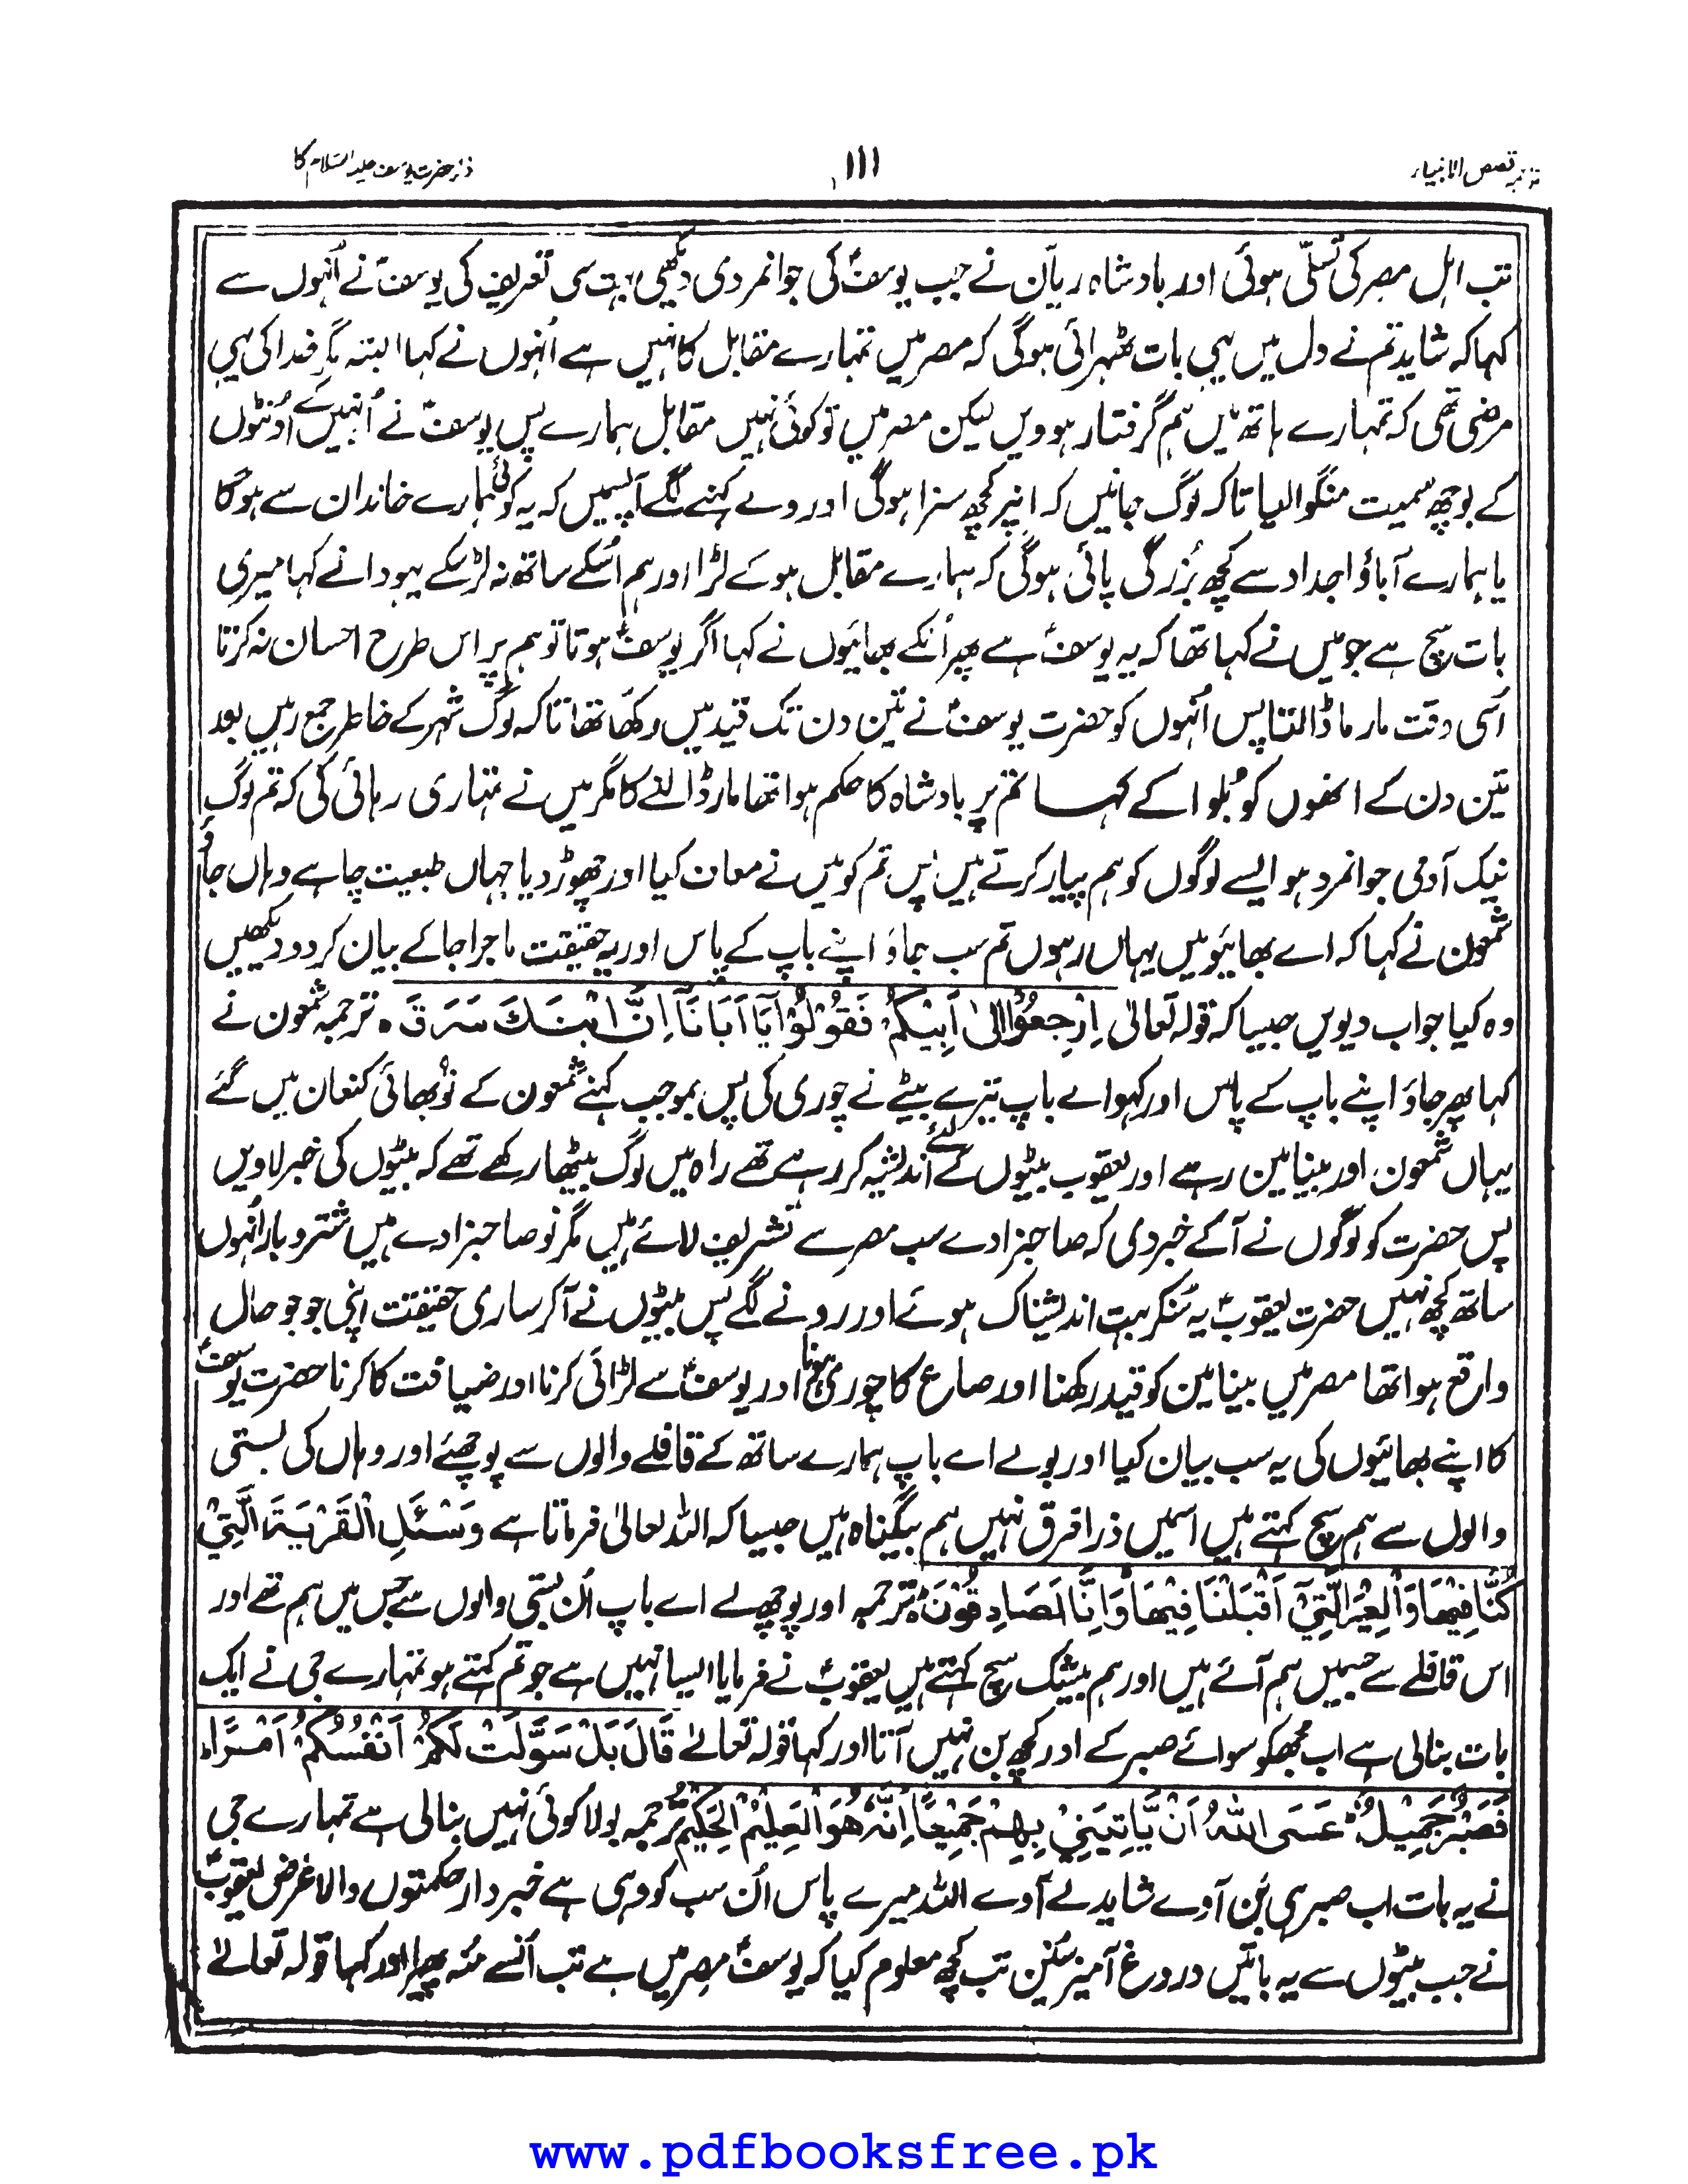 ترجمہ قصص الانبیاء
۱۱۱
ذکر حضرت یوسف علیہ السلام کا
تب اہل مصر کی تسلّی ہوئی اور بادشاہ ریّان نے جب یوسفؑ کی جوانمردی دیکھی بہت سی تعریف کی یوسفؑ نے اُنہوں سے
کہا کہ شاید تم نے دل میں یہی بات ٹھہرائی ہوگی کہ مصر میں تمہارے مقابل کا نہیں ہے اُنہوں نے کہا البتہ مگر خدا کی یہی
مرضی تھی کہ تمہارے ہاتھ میں ہم گرفتار ہوویں لیکن مصر میں تو کوئی نہیں مقابل ہمارے پس یوسفؑ نے اُنہیں کے اُونٹوں
کے بوجھ سمیت منگوا لیا تاکہ لوگ جانیں کہ انپر کچھ سزا ہوگی اور وے کہنے لگے آپسمیں کہ یہ کوئی ہمارے خاندان سے ہوگا
یا ہمارے آباؤ اجداد سے کچھ بُزرگی پائی ہوگی کہ ہمارے مقابل ہوکے لڑا اور ہم اُسکے ساتھ نہ لڑ سکے یہودا نے کہا میری
بات سچ ہے جو میں نے کہا تھا کہ یہ یوسفؑ ہے پھر اُنکے بھائیوں نے کہا اگر یوسفؑ ہوتا تو ہم پر اس طرح احسان نہ کرتا
اُسی وقت مار ڈالتا پس اُنہوں کو حضرت یوسفؑ نے تین دن تک قید میں رکھا تھا تاکہ لوگ شہر کے خاطر جمع رہیں بعد
تین دن کے انھوں کو بُلوا کے کہا تم پر بادشاہ کا حکم ہوا تھا مار ڈالنے کا مگر میں نے تمہاری رہائی کی کہ تم لوگ
نیک آدمی جوانمرد ہو ایسے لوگوں کو ہم پیار کرتے ہیں پس تم کو میں نے معاف کیا اور چھوڑ دیا جہاں طبیعت چاہے وہاں جاؤ
شمعون نے کہا کہ اے بھائیو میں یہاں رہوں تم سب جاؤ اپنے باپ کے پاس اور یہ حقیقت ماجرا جاکے بیان کردو دیکھیں
وہ کیا جواب دیویں جیسا کہ قولہ تعالیٰ اِرْجِعُوْا اِلیٰ اَبِیْكُمْ فَقُوْلُوْا یَا اَبَانَا اِنَّ ابْنَكَ سَرَقَ ہ ترجمہ شمعون نے
کہا پھر جاؤ اپنے باپ کے پاس اور کہو اے باپ تیرے بیٹے نے چوری کی پس بموجب کہنے شمعون کے نو بھائی کنعان میں گئے
یہاں شمعون اور بینامین رہے اور یعقوب بیٹوں کے لئے اندیشہ کر رہے تھے راہ میں لوگ بیٹھا رکھے تھے کہ بیٹوں کی خبر لاویں
پس حضرت کو لوگوں نے آکے خبر دی کہ صاحبزادے سب مصر سے تشریف لائے ہیں مگر نو صاحبزادے ہیں شتر و بار اُنہوں
ساتھ کچھ نہیں حضرت یعقوبؑ یہ سُنکر بہت اندیشناک ہوئے اور رونے لگے پس بیٹوں نے آکر ساری حقیقت اپنی جو جو حال
واقع ہوا تھا مصر میں بینامین کو قید رکھنا اور صاع کا چوری ہونا اور یوسفؑ سے لڑائی کرنا اور ضیافت کا کرنا حضرت یوسفؑ
کا اپنے بھائیوں کی یہ سب بیان کیا اور بولے اے باپ ہمارے ساتھ کے قافلے والوں سے پوچھئے اور وہاں کی بستی
والوں سے ہم سچ کہتے ہیں اسمیں ذرا فرق نہیں ہم بیگناہ ہیں جیسا کہ اللہ تعالیٰ فرماتا ہے وَسْئَلِ الْقَرْیَةَ الَّتِیْ
كُنَّا فِیْهَا وَالْعِیْرَ الَّتِیْ اَقْبَلْنَا فِیْهَا وَاِنَّا لَصَادِقُوْنَ ہ ترجمہ اور پوچھ لے اے باپ اُن بستی والوں سے جس میں ہم تھے اور
اس قافلے سے جسمیں ہم آئے ہیں اور ہم بیشک سچ کہتے ہیں یعقوبؑ نے فرمایا ایسا نہیں ہے جو تم کہتے ہو تمہارے جی نے ایک
بات بنالی ہے اب مجھکو سوائے صبر کے اور کچھ بن نہیں آتا اور کہا قولہ تعالےٰ قَالَ بَلْ سَوَّلَتْ لَكُمْ اَنْفُسُكُمْ اَمْرًا ط
فَصَبْرٌ جَمِیْلٌ ط عَسَی اللّٰهُ اَنْ یَّاتِیَنِیْ بِهِمْ جَمِیْعًا اِنَّهٗ هُوَ الْعَلِیْمُ الْحَكِیْمُ ترجمہ بولا کوئی نہیں بنالی ہے تمہارے جی
نے یہ بات اب صبر ہی بَن آوے شاید لے آوے اللہ میرے پاس اُن سب کو وہی ہے خبردار حکمتوں والا غرض یعقوبؑ
نے جب بیٹوں سے یہ باتیں دروغ آمیز سُنیں تب کچھ معلوم کیا کہ یوسفؑ مصر میں ہے تب اُنسے مُنہ پھیرا اور کہا قولہ تعالےٰ
www.pdfbooksfree.pk